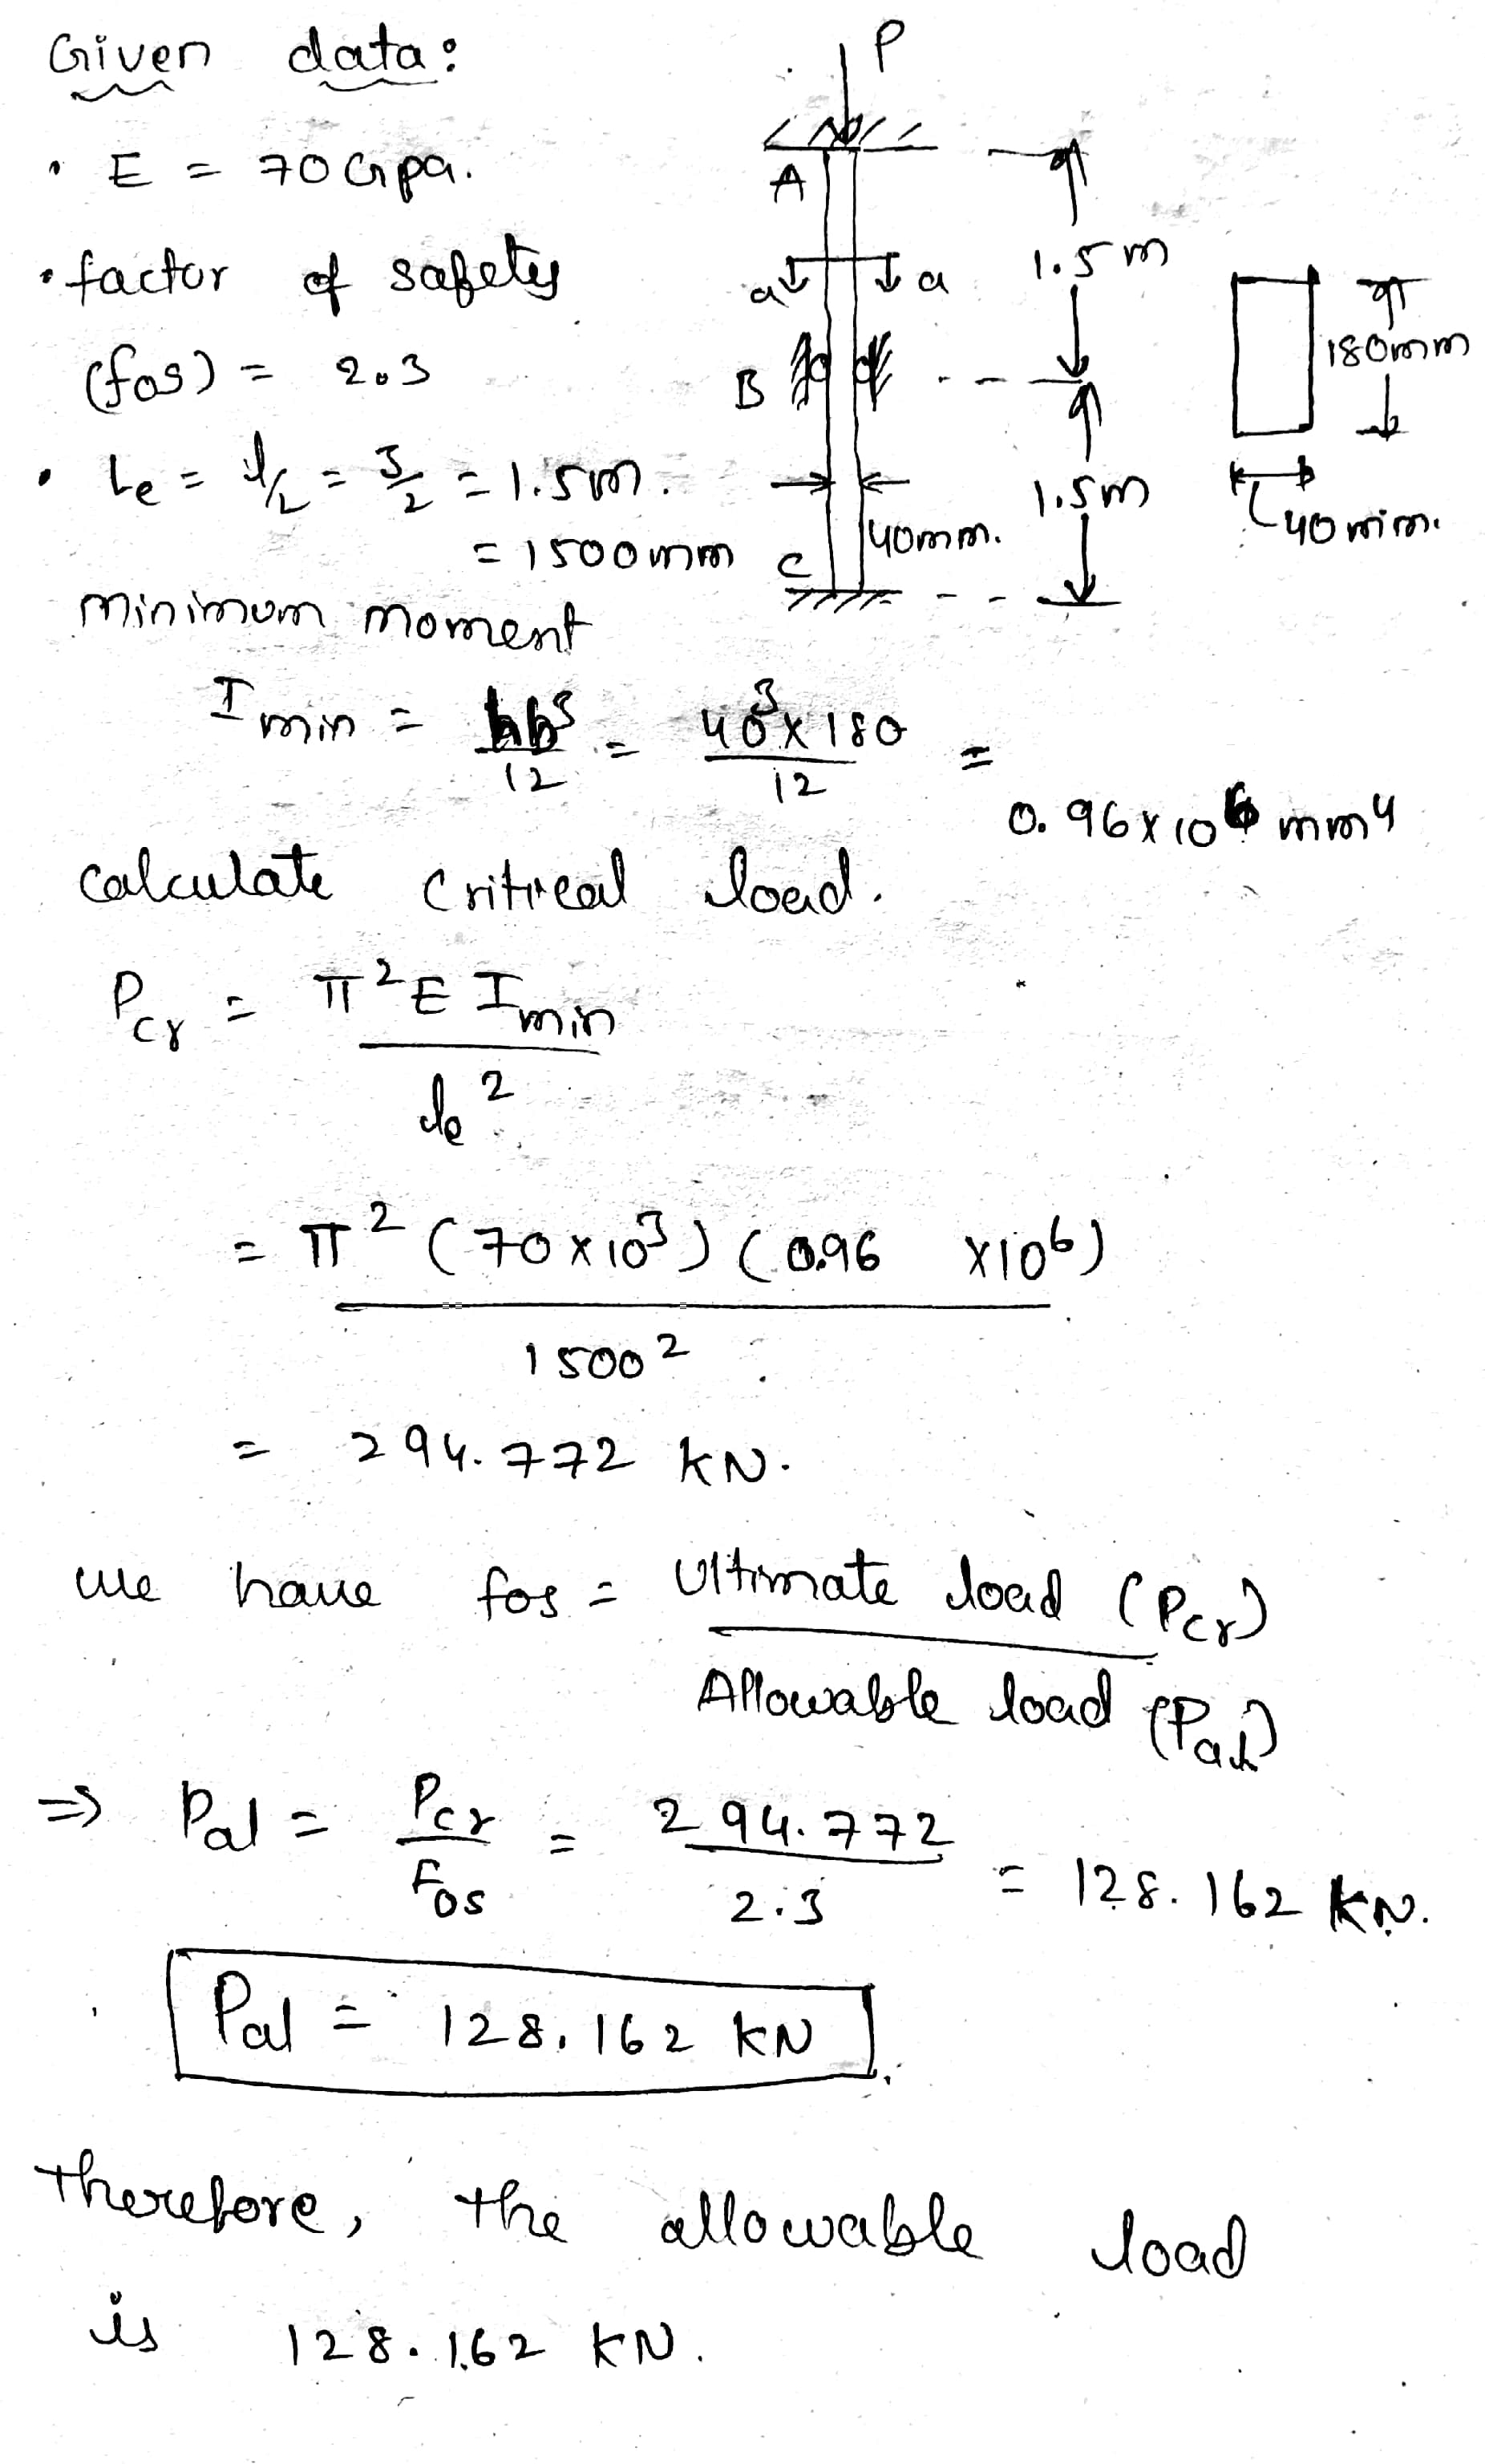 Given data:
P
• E = 70 Gpa.
A
1.5 m
• factor of safety
a a
180mm
(fos) = 2.3
B
• Le = l/2 = 3/2 = 1.5m.
1.5m
40mm.
= 1500mm
40mm.
C
minimum moment
I min = hb³/12 = 40³ x 180/12 = 0.96 x 10⁶ mm⁴
calculate critical load.
Pcr = π² E I min / le²
= π² (70 x 10³) (0.96 x 10⁶) / 1500²
= 294.772 KN.
we have fos = Ultimate load (Pcr) / Allowable load (Pal)
⇒ Pal = Pcr/Fos = 294.772/2.3 = 128.162 KN.
Pal = 128.162 KN
Therefore, the allowable load
is 128.162 KN.